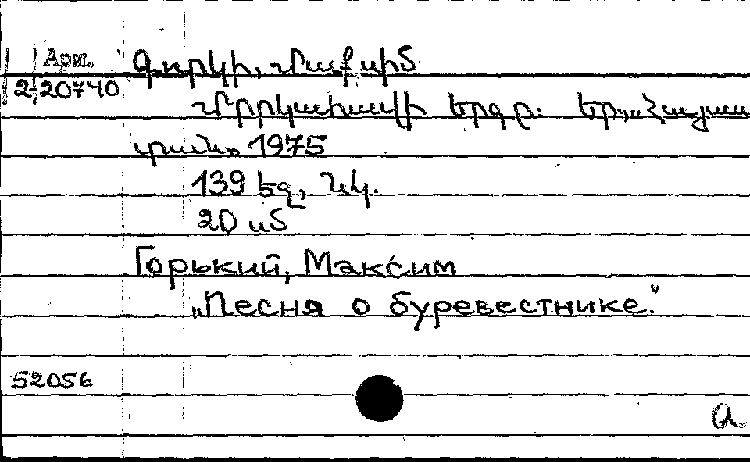 Арм.
2-20740
Գորկի, Մաքսիմ
Մրրկահավի երգը. Եր., „Հայաս
տան„ 1975
139 եզ, նկ.
20 սմ
Горький, Максим
„Песня о буревестнике."
52056
а.